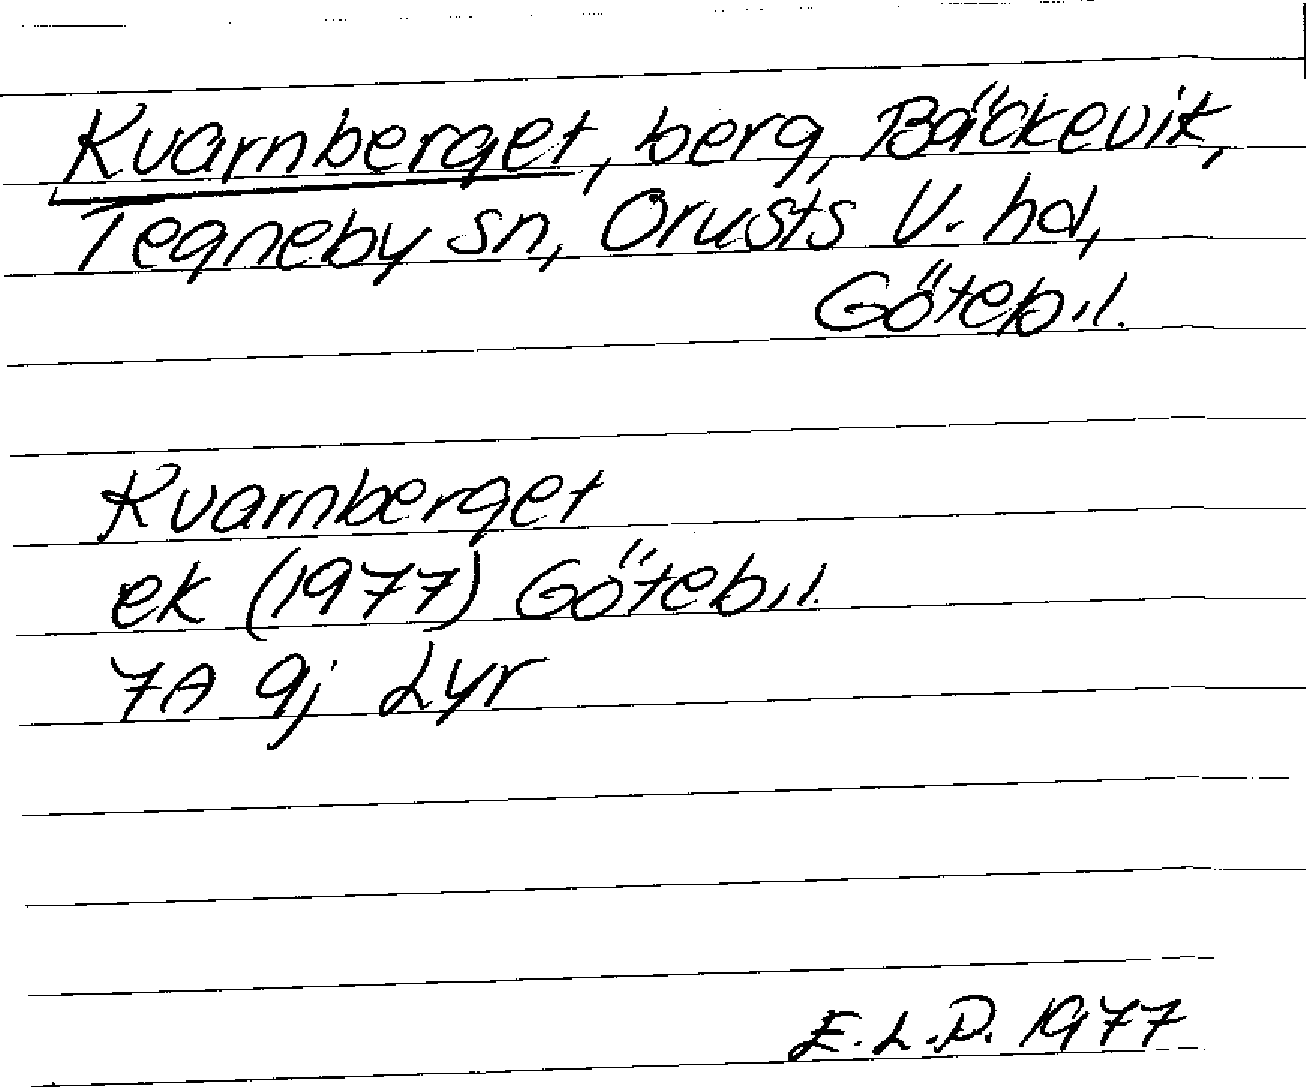 Kvarnberget, berg, Bäckevik,
Tegneby sn, Orusts V. hd,
Göteb.l.
Kvarnberget
ek (1977) Göteb.l.
7A 9j Lyr
E.L.P. 1977